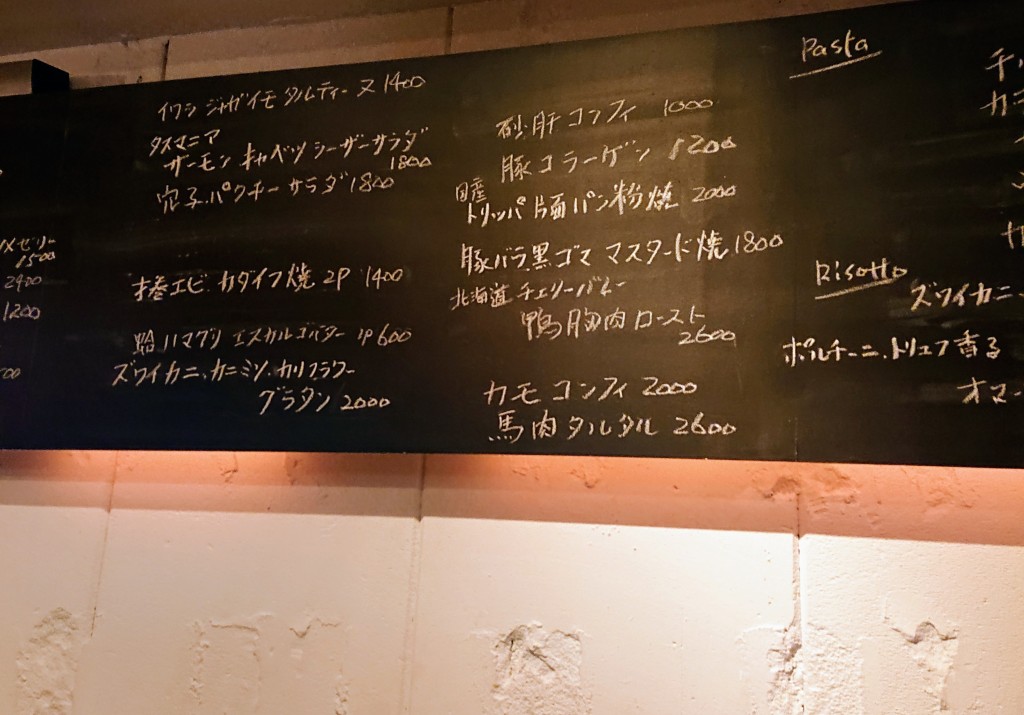 メゼリー
1500
2400
1200
イワシ ジャガイモ タルムティーヌ 1400
タスマニア
サーモン キャベツ シーザーサラダ
1800
穴子パクチーサラダ 1800
才巻エビ カダイフ焼 2P 1400
蛤 ハマグリ エスカルゴバター 1P 600
ズワイカニ、カニミソ、カリフラワー
グラタン 2000
砂肝コンフィ 1000
豚コラーゲン 1200
国産
トリッパ 片面パン粉焼 2000
豚バラ 黒ゴマ マスタード焼 1800
北海道 チェリーバレー
鴨胸肉ロースト
2600
カモ コンフィ 2000
馬肉タルタル 2600
Pasta
Risotto
ズワイカニ、
ポルチーニ、トリュフ香る
オマー